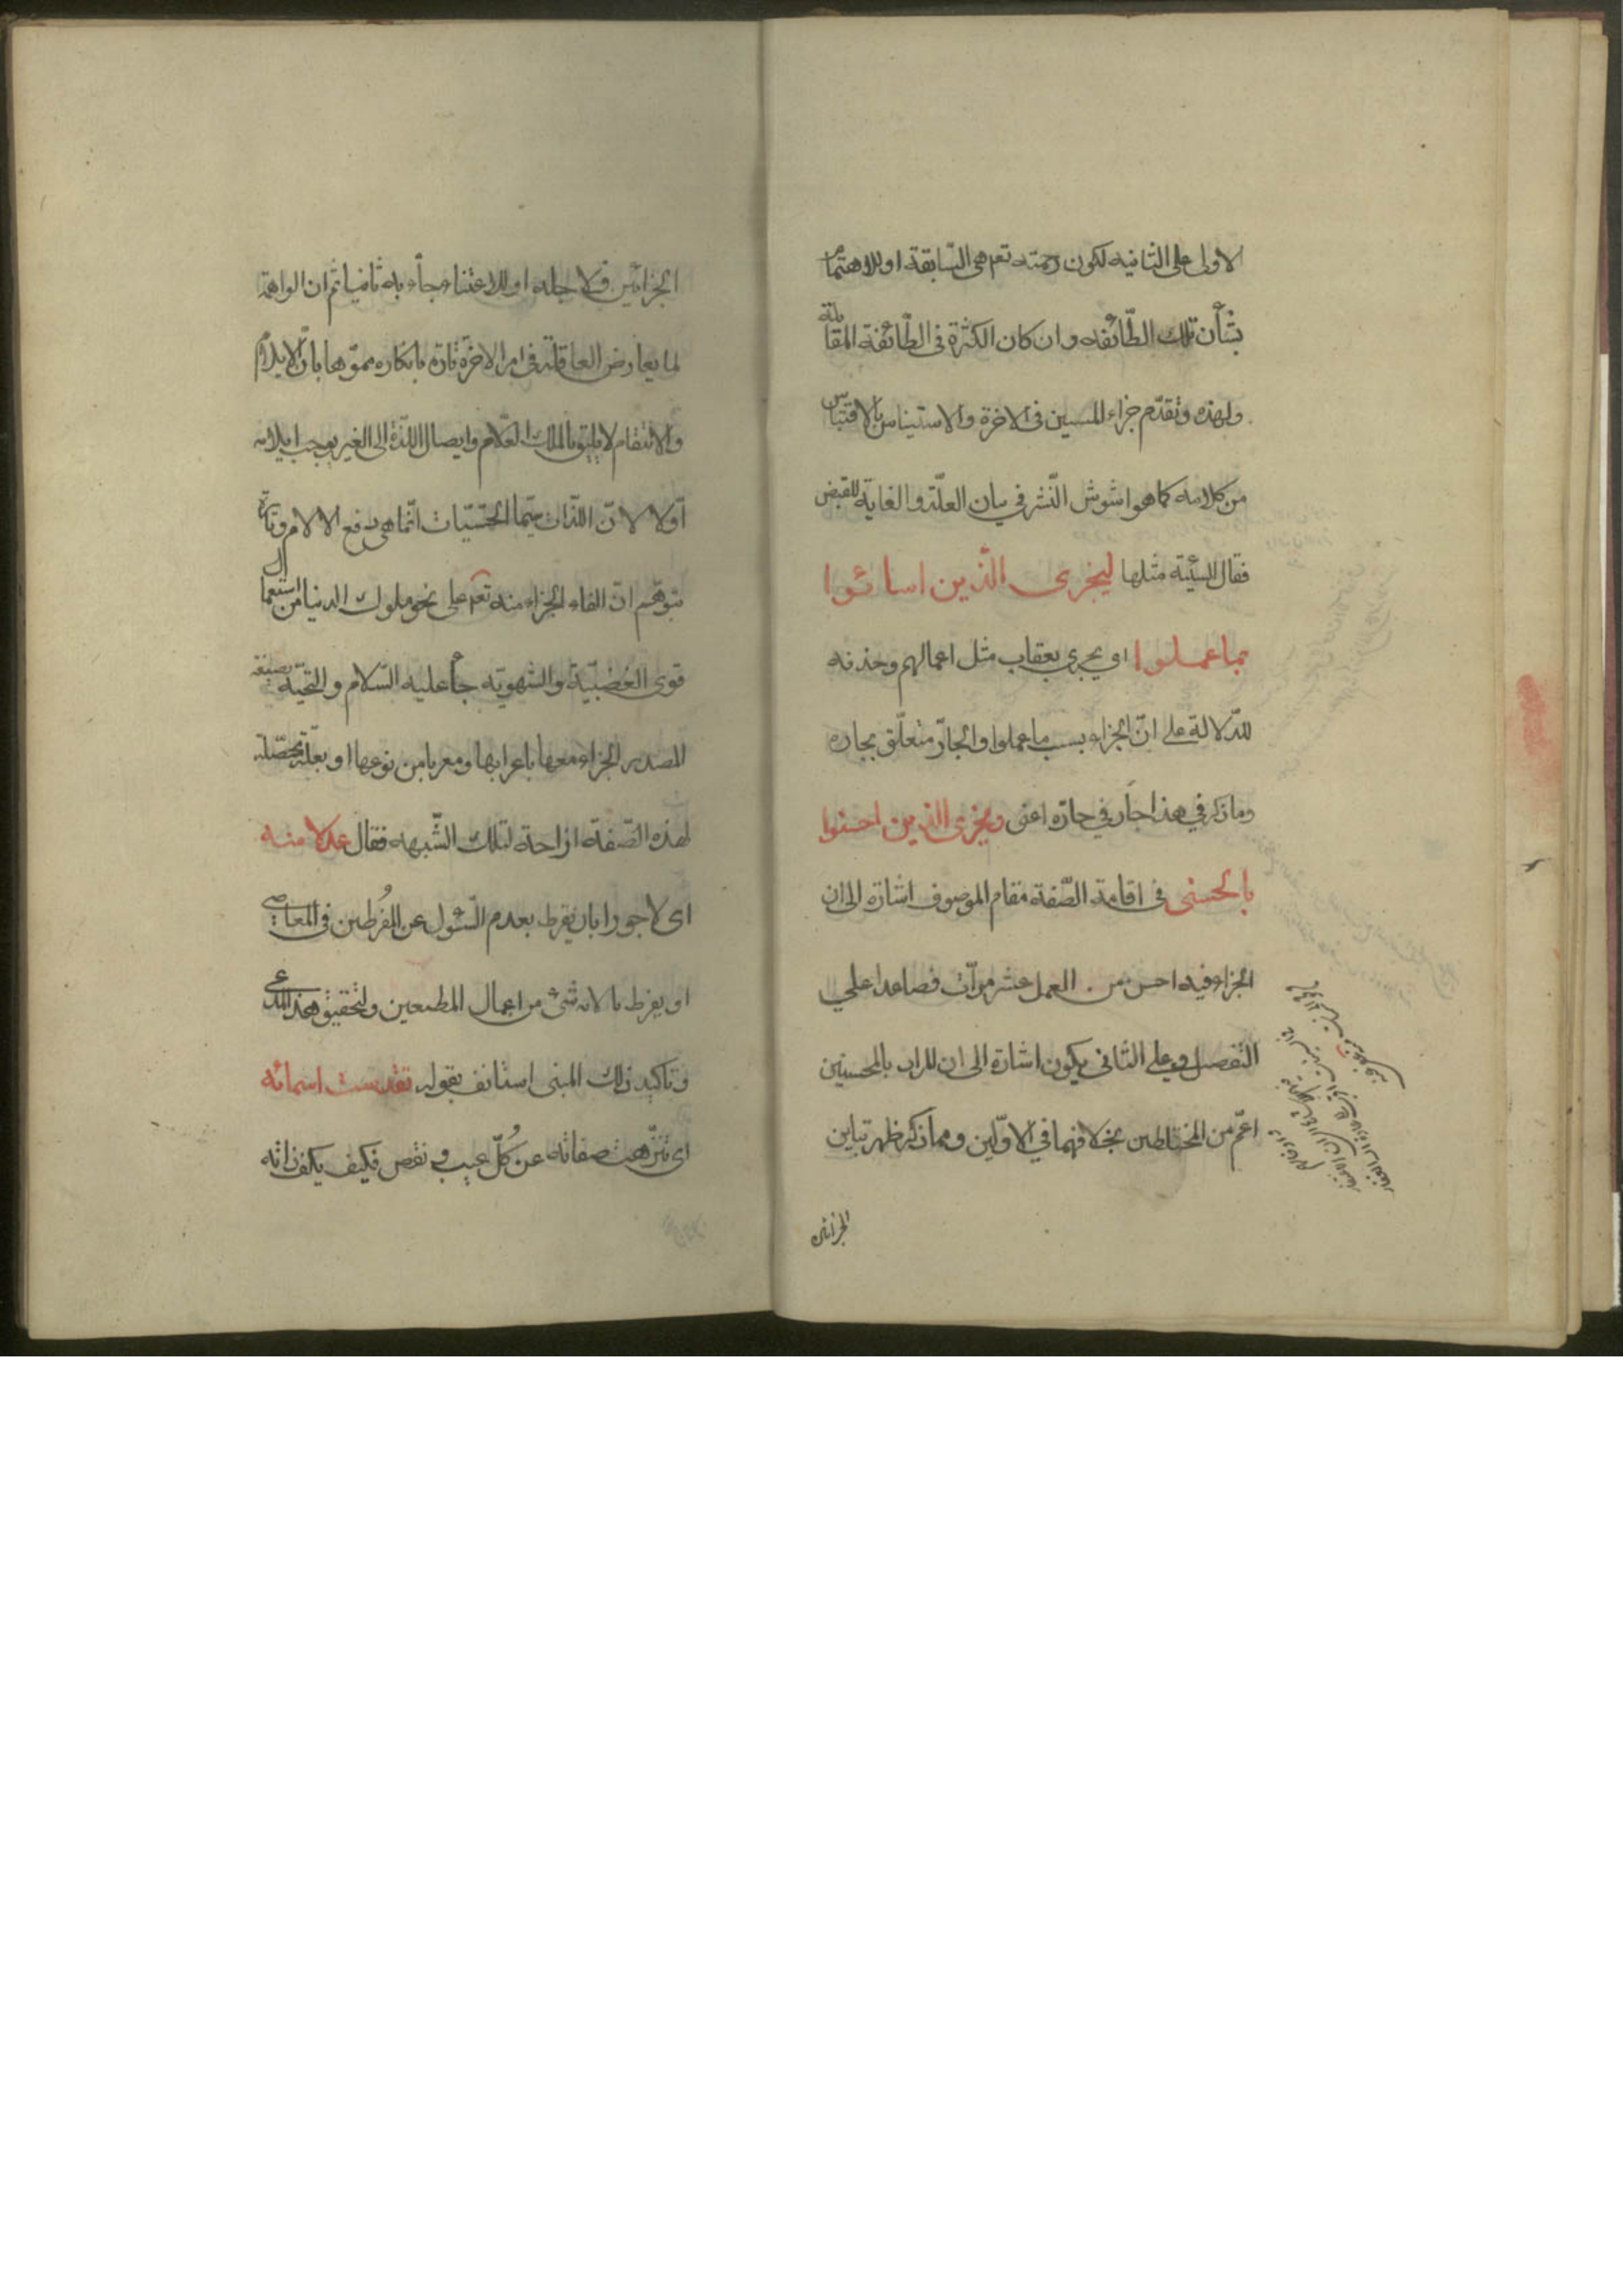 الاولى على الثانيه لكون رحمته تعم هى السّابقة او للاهتمام
بشأن تلك الطّائفه وان كان الكثرة فى الطّائفة المقابلة
ولهذه وتقدّم جزاء المسيئين فى الاخرة والاستيناس بالاقتباس
من كلامه كما هو اشوش النّشر فى بيان العلّة والغاية للقبض
فقال السيّئة مثلها ليجزى الّذين اسائوا
بما عملوا اى يجزى بعقاب مثل اعمالهم وحذفه
للدّلالة على انّ الجزاء بسبب ما عملوا والجارّ متعلّق بجاره
وما ذكر في هذا جار في جارّه اعنى ويجزى الذين احسنوا
بالحسنى فى اقامة الصّفة مقام الموصوف اشارة الى ان
الجزاء فيه احسن من العمل عشر مرّات فصاعدا على
التفصيل وعلى الثانى يكون اشارة الى ان المراد بالمحسنين
اعمّ من المختلطين بخلافهما في الاوّلين ومما ذكر ظهر تباين
الجزائين
الجزائين فلاجله او للاعتناء جاء به ثانيا ثم ان الواهمة
لما يعارض العاقلة فى امر الاخرة تارة بانكاره مموّها بانّ الايلام
والانتقام لا يليق بالملك العلّام وايصال اللذّة الى الغير يوجب ايلامه
اوّلا لانّ اللذّات سيّما الحسّيّات انّما هى دفع الالام وتارة
بتوهّم انّ القاء الجزاء منه تعم على نحو ملوك الدنيا من استعمال
قوى الغضبيّة والشهويّه جاء عليه السّلام والتحيّة بصيغة
المصدر الجزاء معها باعرابها ومعربا من نوعها او بعلّة محصّلة
لهذه الصّفة ازاحة لتلك الشّبهه فقال عدلا منه
اى لا جورا بان يفرط بعدم السّئول عن المُفرطين فى المعاصى
او يفرط بالانه شئ من اعمال المطيعين ولتحقيق هذا المدّعى
وتاكيد ذلك المبنى استانف بقوله تقدست اسمائه
اى تنزّهت صفاته عن كُلّ عيب ونقص فكيف يكف ذاته